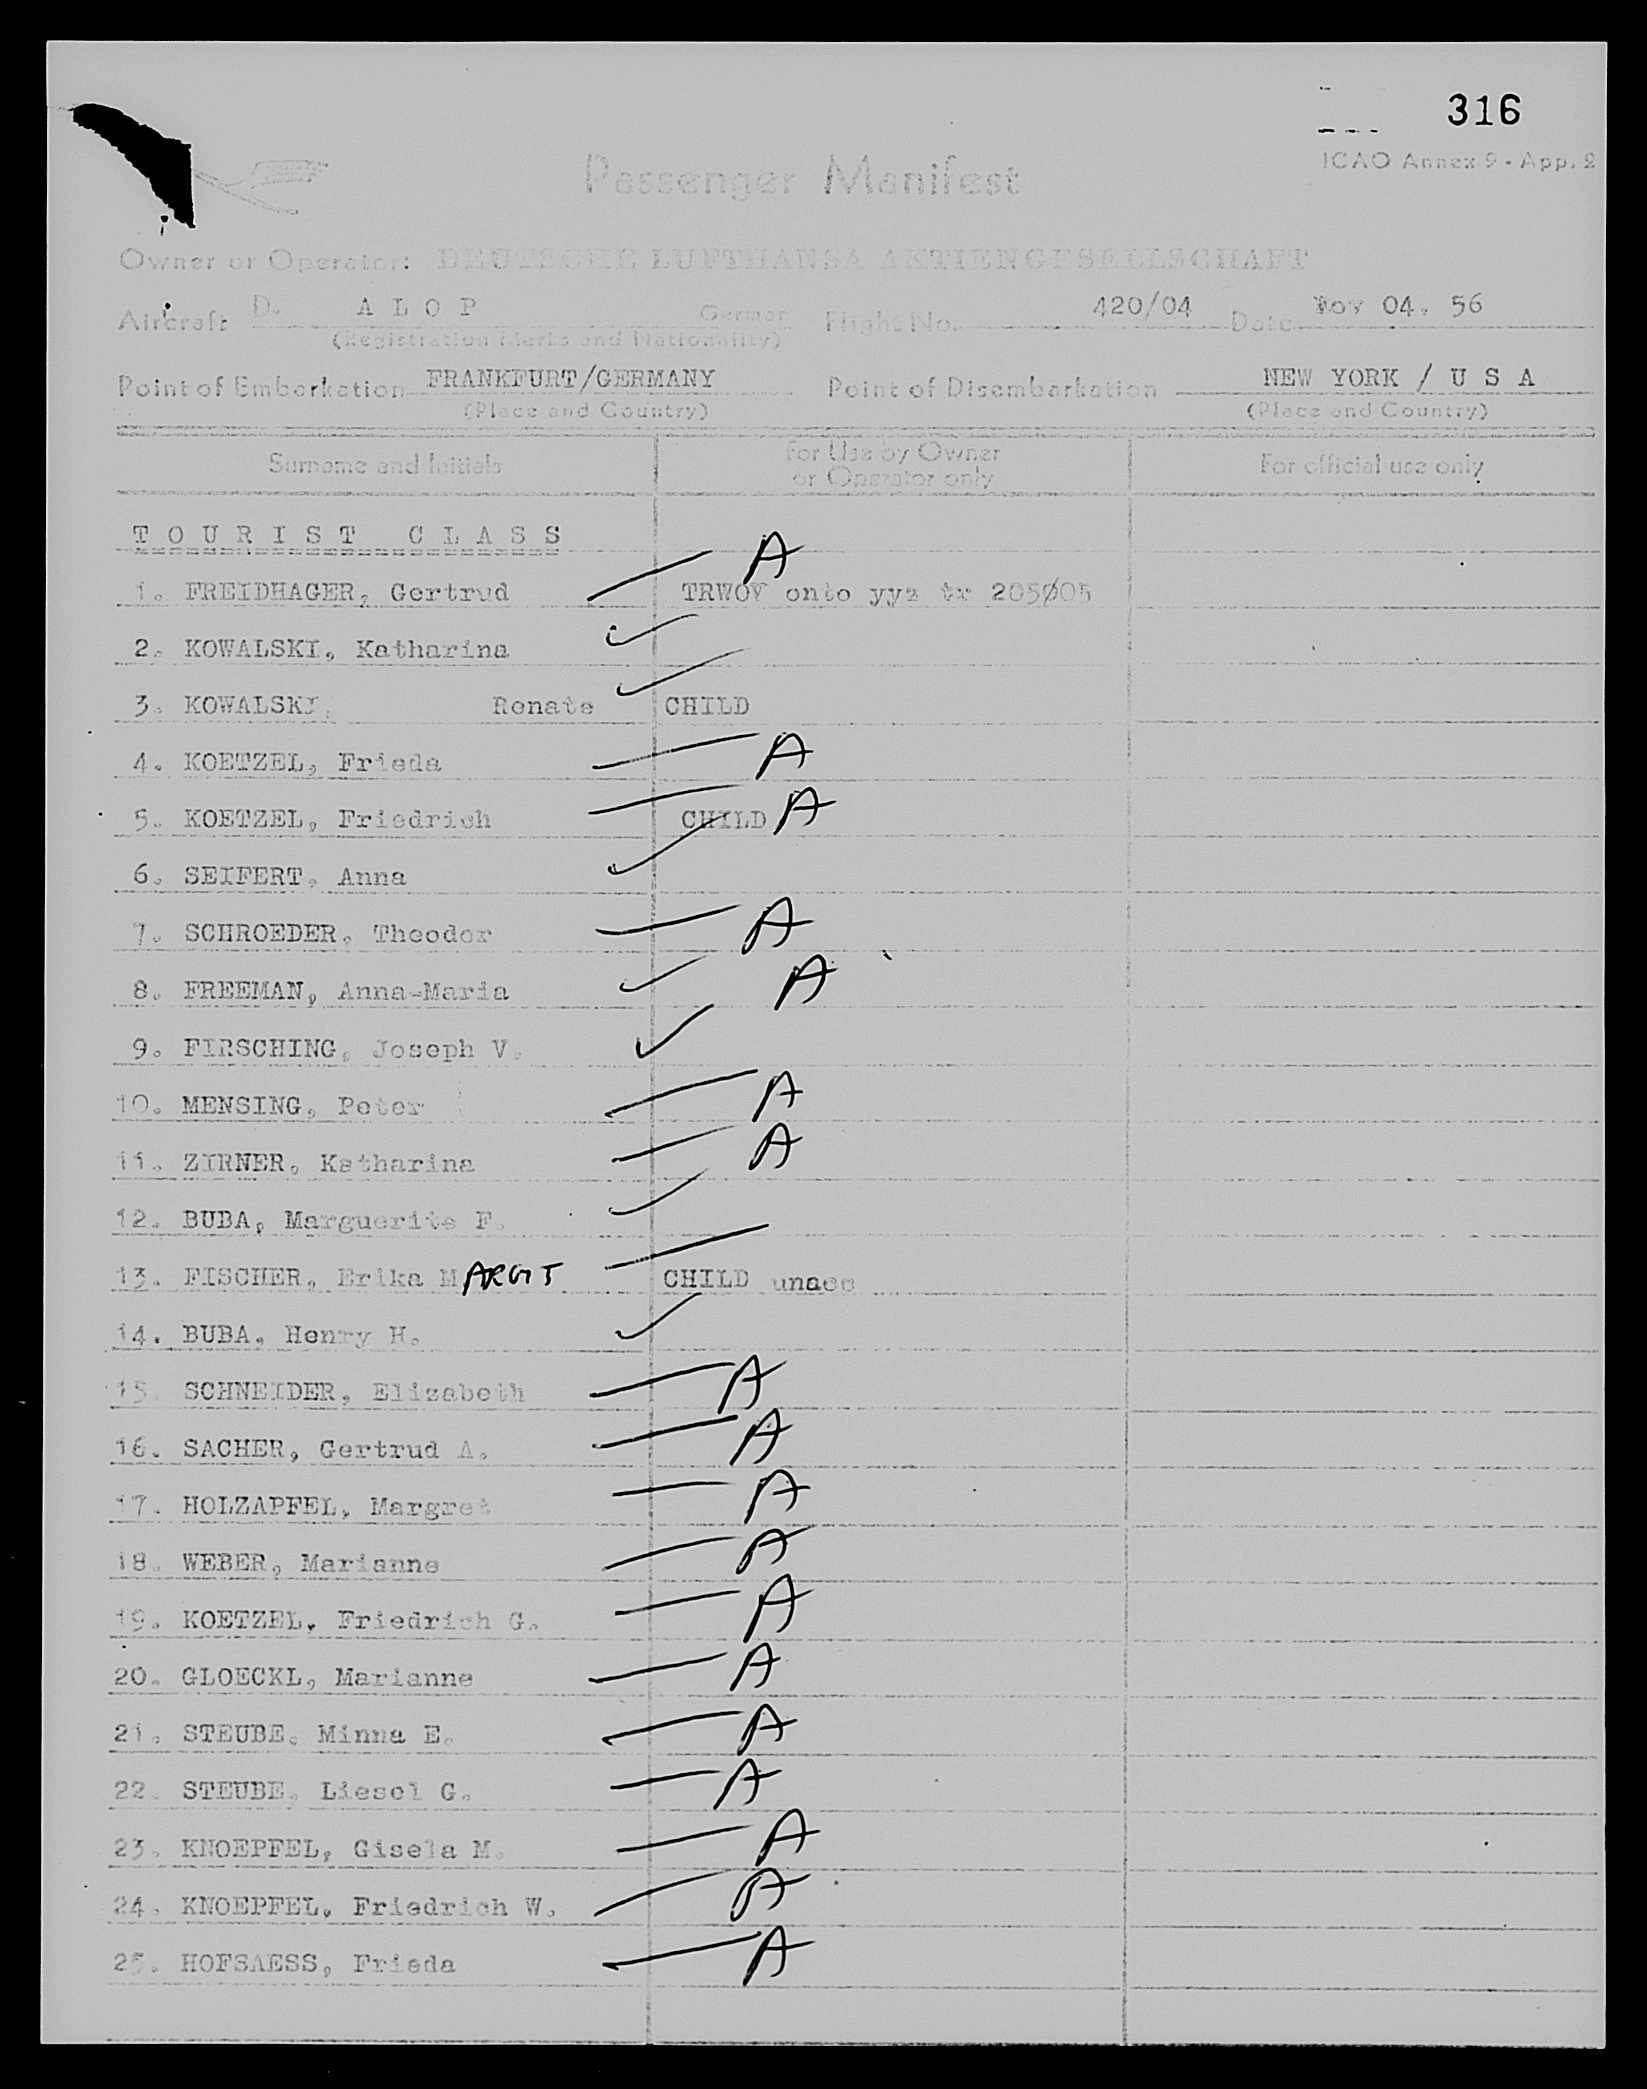 316
ICAO Annex 9 - App. 2
Passenger Manifest
Owner or Operator: DEUTSCHE LUFTHANSA AKTIENGESELLSCHAFT
Aircraft D. A L O P German Flight No. 420/04 Date Nov 04. 56
(Registration Marks and Nationality)
Point of Embarkation FRANKFURT/GERMANY Point of Disembarkation NEW YORK / U S A
(Place and Country) (Place and Country)
Surname and Initials For Use by Owner or Operator only For official use only
T O U R I S T C L A S S
1. FREIDHAGER, Gertrud A TRWOV onto yyz tr 205005
2. KOWALSKI, Katharina
3. KOWALSKI, Renate CHILD
4. KOETZEL, Frieda A
5. KOETZEL, Friedrich CHILD A
6. SEIFERT, Anna
7. SCHROEDER, Theodor A
8. FREEMAN, Anna-Maria A
9. FIRSCHING, Joseph V.
10. MENSING, Peter A
11. ZIRNER, Katharina A
12. BUBA, Marguerite F.
13. FISCHER, Erika MARGIT CHILD unacc
14. BUBA, Henry H.
15. SCHNEIDER, Elizabeth A
16. SACHER, Gertrud A. A
17. HOLZAPFEL, Margret A
18. WEBER, Marianne A
19. KOETZEL, Friedrich G. A
20. GLOECKL, Marianne A
21. STEUBE, Minna E. A
22. STEUBE, Liesel G. A
23. KNOEPFEL, Gisela M. A
24. KNOEPFEL, Friedrich W. A
25. HOFSAESS, Frieda A